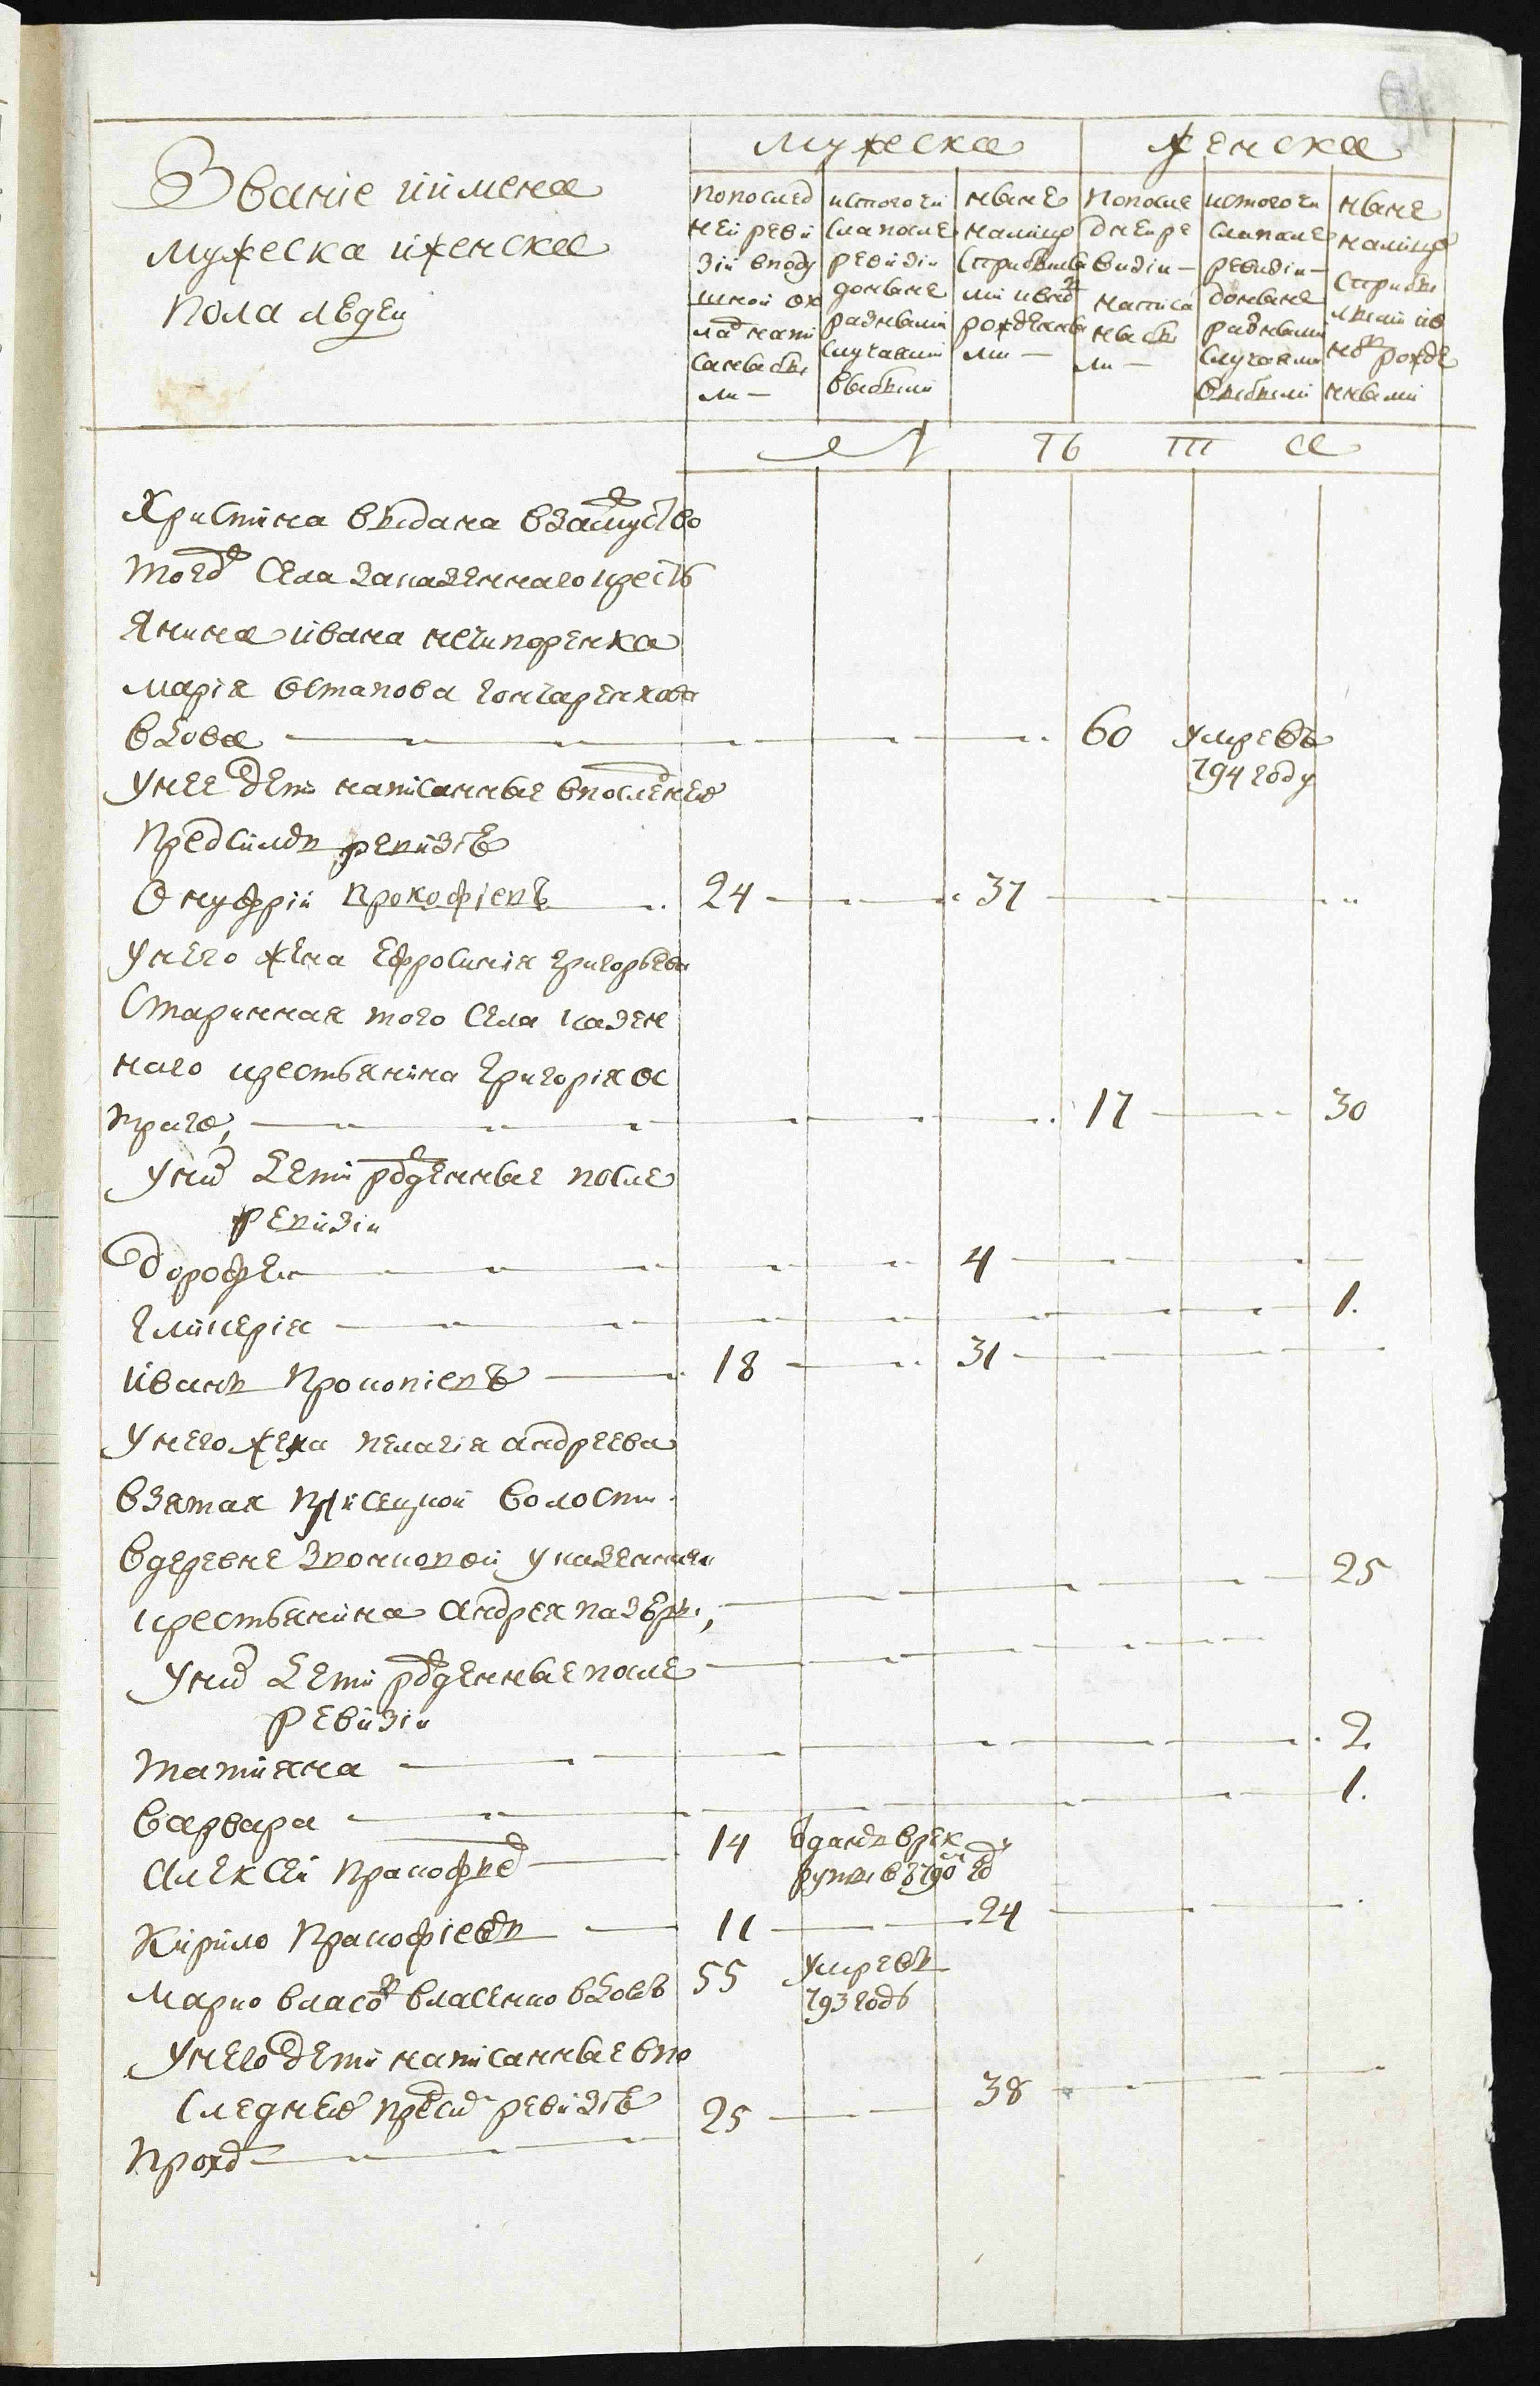 Мужеска
Женска
Званіе иимена
мужеска иженска
пола людеи
попослед
ней реви
зіи вподу
шной ок
лад напи
саны бы
ли —
истого чи
сла после
ревизіи
доныне
разными
случаями
выбыли
ныне
налицо
сприбылы
ми ивнов
рожденны
ми —
попосле
дней ре
визіи —
написа
ны бы
ли —
истого чи
сла после
ревизіи —
доныне
разными
случаями
выбыли
ныне
налицо
сприбы
лыми ив
нов рожде
нными
л ѣ т а
Христина выдана взамуство
тогож села заказеннаго кресть
янина ивана нечипоренка
Марія Остапова гончаренкова
вдова — 60 умре въ
794 году
унее дети написанные впоследнею
предсимъ ревизіе
Онуфрій Прокофіевъ 24 — 37
унего жена Ефросинія григорьева
старинная того села казен
наго крестьянина григорія
17 — 30
уних дети рожденные после
ревизіи
дорофеи — 4
гликерія — 1.
иванъ Прокопіевъ 18 — 31
унего жена пелагія андреева
взятая волости
вдеревне указеннаго
крестьянина андрея — 25
уних дети рожденные после
ревизіи
татияна — 2.
варвара — 1.
Алексей Прокофіев 14 отданъ врек
руты в 790 год
Кирило Прокофіевъ 11 — 24
Марко власов власенко вдовъ 55 умре въ
793 годѣ
унего дети написанные впо
следнею предсим ревизіе
Прохор — 25 — 38